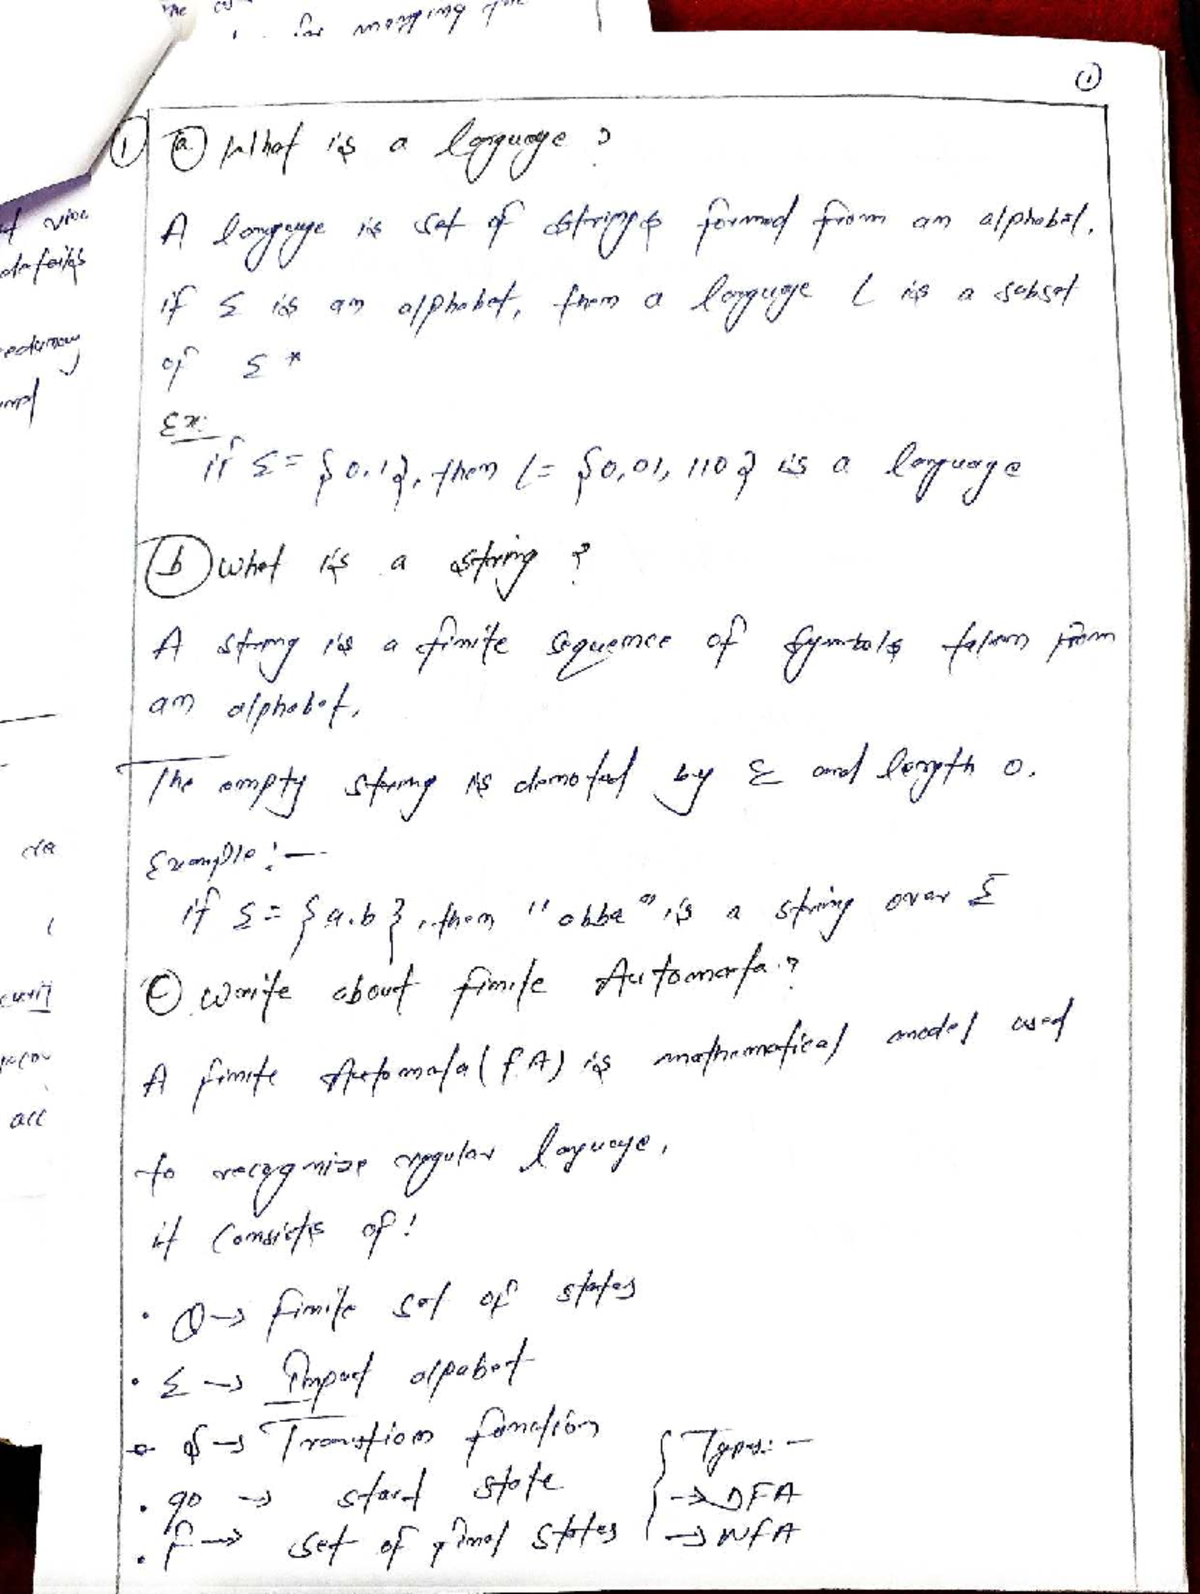 for mapping the
①
① ⓐ What is a language ?
A language is set of strings formed from an alphabet.
if Σ is an alphabet, then a language L is a subset
of Σ *
Ex:
if Σ = {0.1}, then L = {0,01, 110} is a language
ⓑ What is a string ?
A string is a finite sequence of symbols taken from
an alphabet.
The empty string is denoted by Σ and length 0.
Example :-
if Σ = {a.b}, then "abba" is a string over Σ
ⓒ Write about finite Automata ?
A finite Automata (FA) is mathematical model used
to recognize regular language,
it consists of :
• Q → finite set of states
• Σ → Input alpabet
• δ → Transtion function
• q0 → start state
• F → set of final states
{ Types: -
→ DFA
→ NFA
all